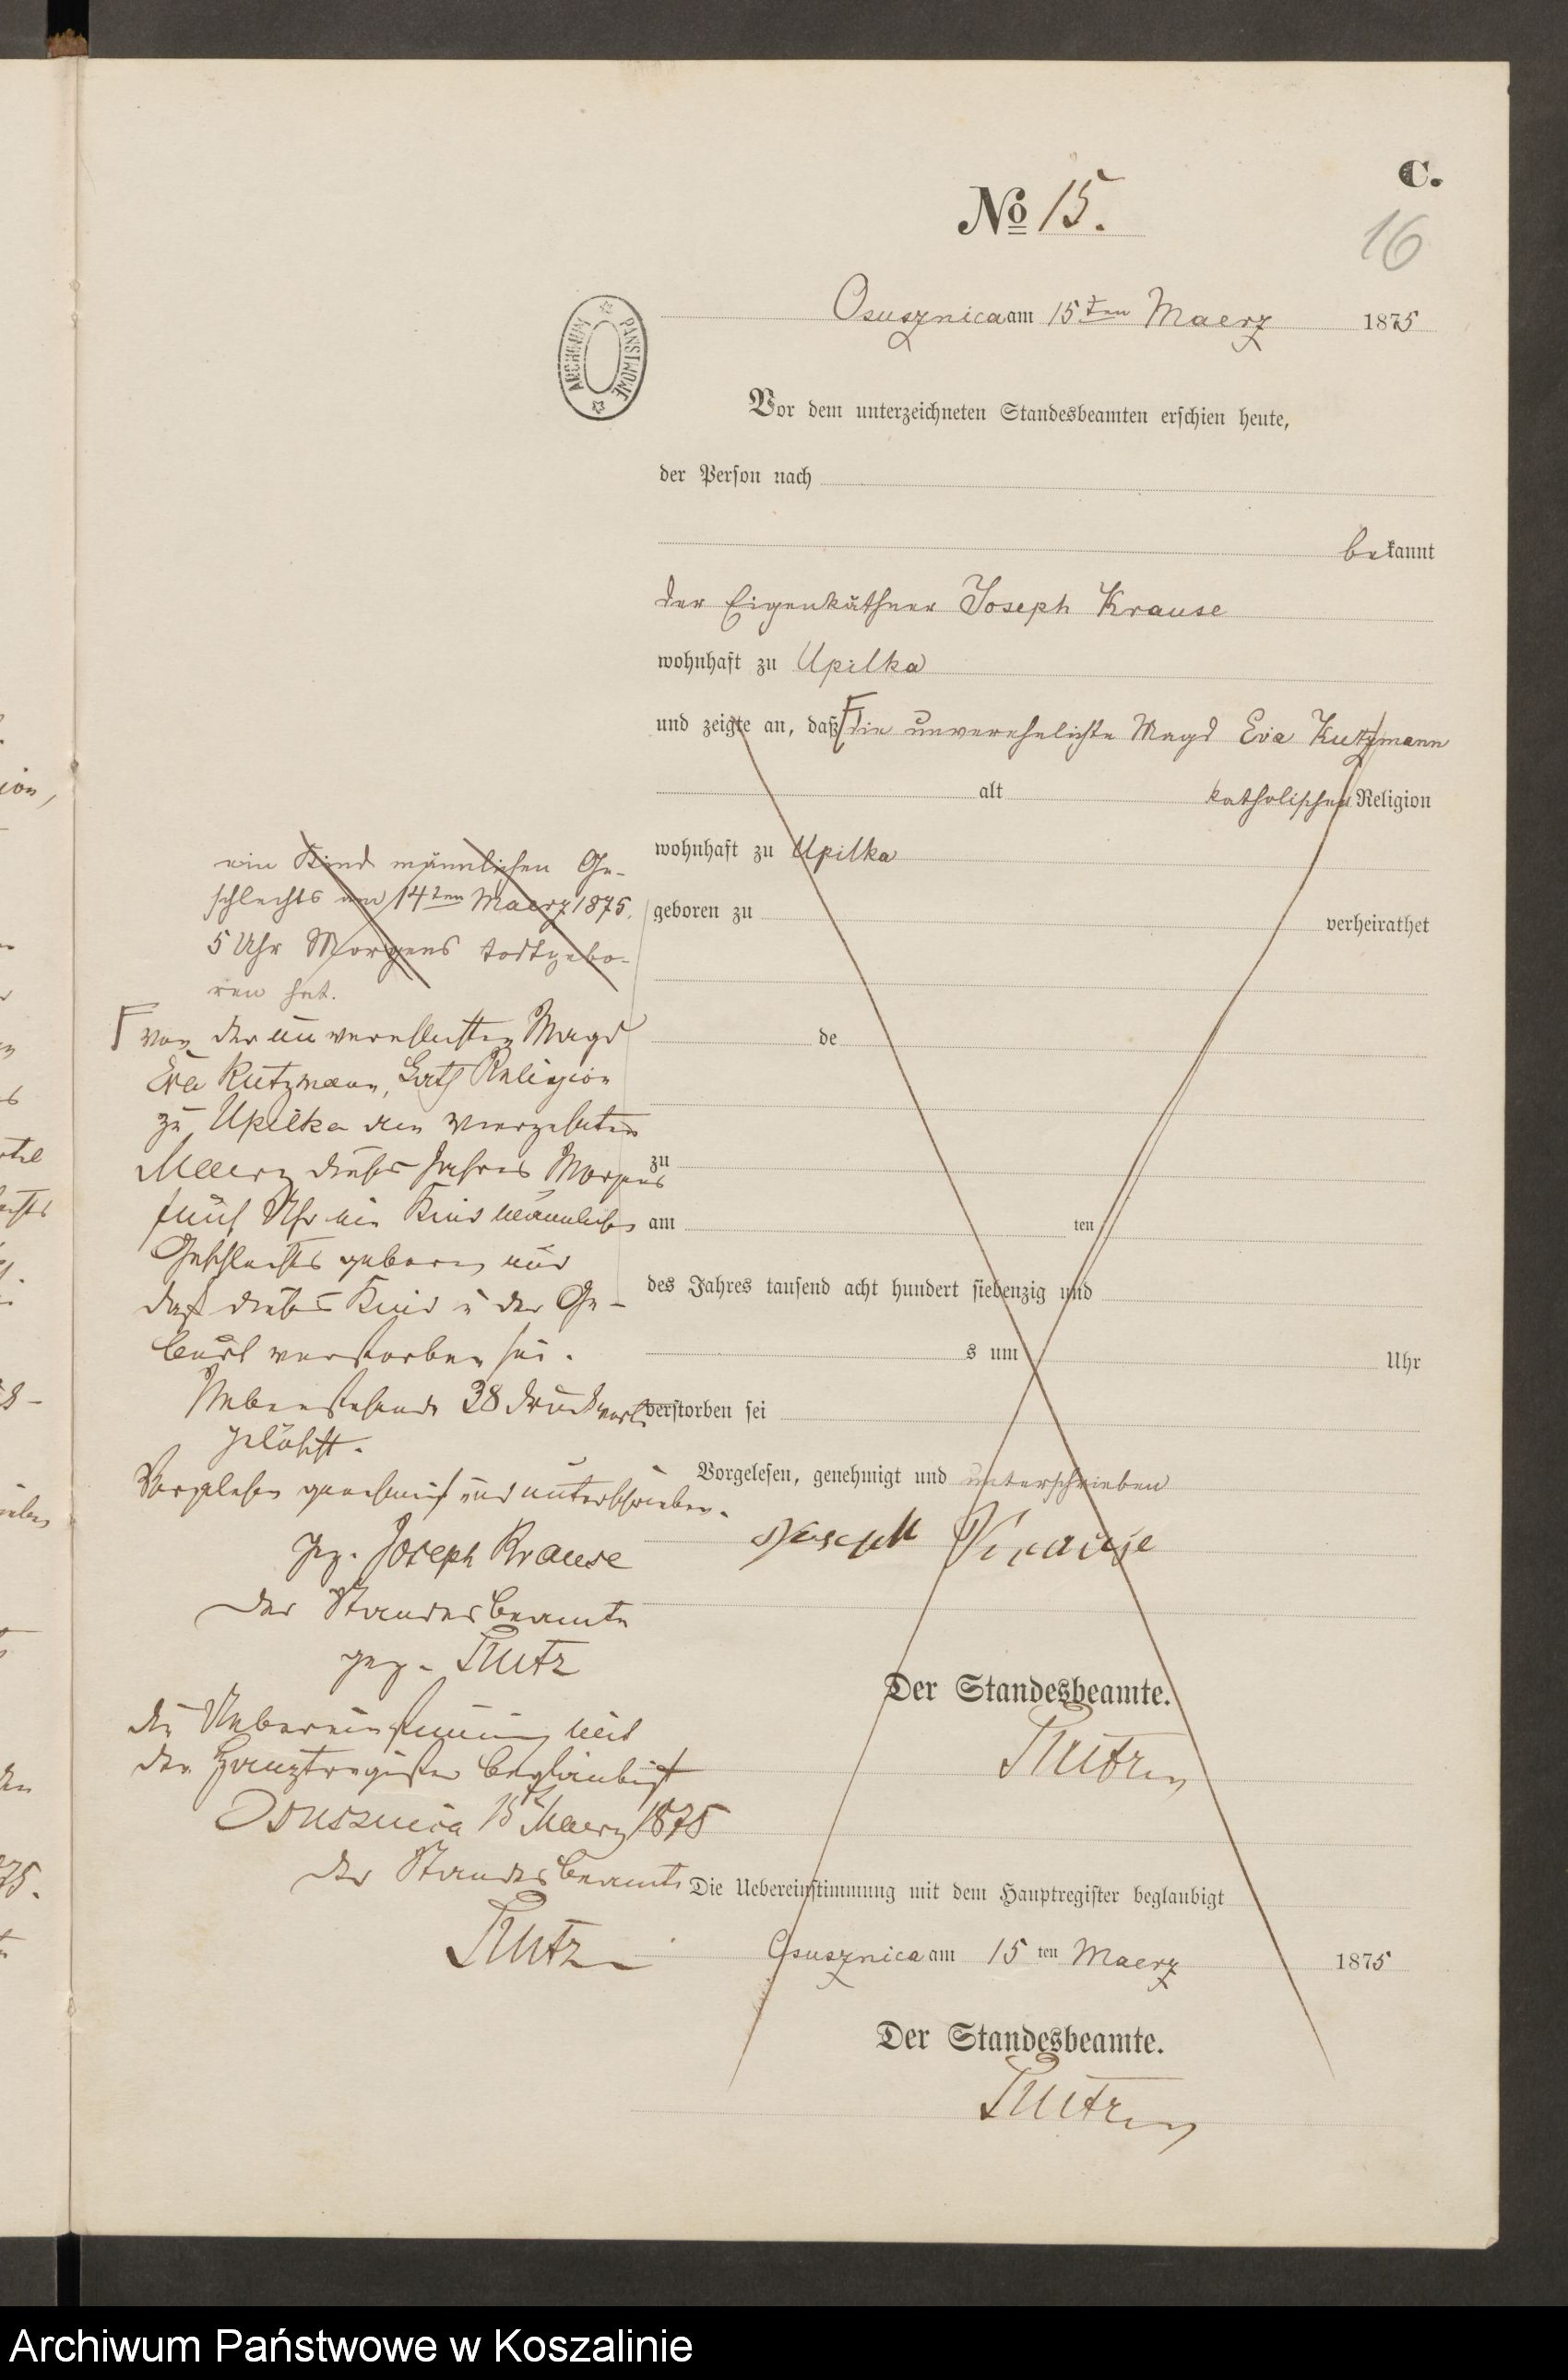 C.
No 15.
16
Osusznica am 15ten Maerz 1875
ARCHIWUM PAŃSTWOWE
Vor dem unterzeichneten Standesbeamten erschien heute,
der Person nach
bekannt
der Eigenkäthner Joseph Krause
wohnhaft zu Upilka
und zeigte an, daß die unverehelichte Magd Eva Kutzmann
alt katholischer Religion
wohnhaft zu Upilka
geboren zu verheirathet
de
zu
am ten
des Jahres tausend acht hundert siebenzig und
s um Uhr
verstorben sei
Vorgelesen, genehmigt und unterschrieben
Joseph Krause
Der Standesbeamte.
Die Uebereinstimmung mit dem Hauptregister beglaubigt
Osusznica am 15 ten Maerz 1875
Der Standesbeamte.
ein Kind männlichen Ge-
schlechts am 14ten Maerz 1875,
5 Uhr Morgens todtgebo-
ren hat.
von der unverehelichten Magd
Eva Kutzmann, kath Religion
zu Upilka den vierzehnten
Maerz dieses Jahres Morgens
fünf Uhr ein Kind männlichen
Geschlechts geboren und
daß dieses Kind in der Ge-
burt verstorben sei.
Nebenstehende 38 Druckworte
gelöscht.
Vorgelesen genehmigt und unterschrieben.
gez. Joseph Krause
Der Standesbeamte
gez.
Die Uebereinstimmung mit
dem Hauptregister beglaubigt
Osusznica 15 Maerz 1875
Der Standesbeamte
Archiwum Państwowe w Koszalinie